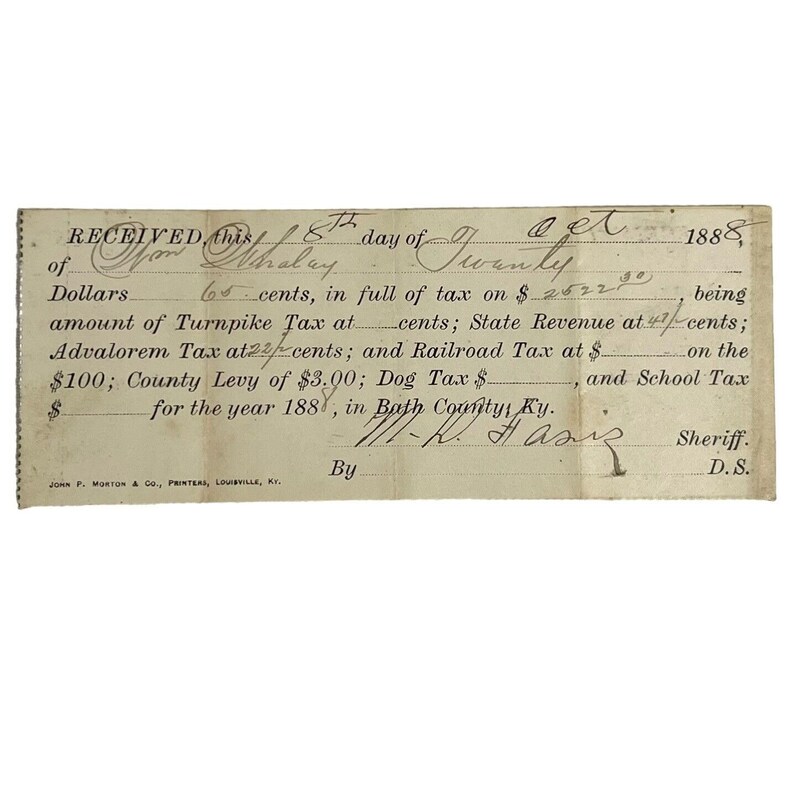 RECEIVED, this 8th day of Oct 1888,
of Wm Whaley Twenty
Dollars 65 cents, in full of tax on $ 2522 30, being
amount of Turnpike Tax at cents; State Revenue at 47½ cents;
Advalorem Tax at 22½ cents; and Railroad Tax at $ on the
$100; County Levy of $3.00; Dog Tax $ , and School Tax
$ for the year 1888, in Bath County, Ky.
M. D. Sheriff.
By D. S.
JOHN P. MORTON & CO., PRINTERS, LOUISVILLE, KY.